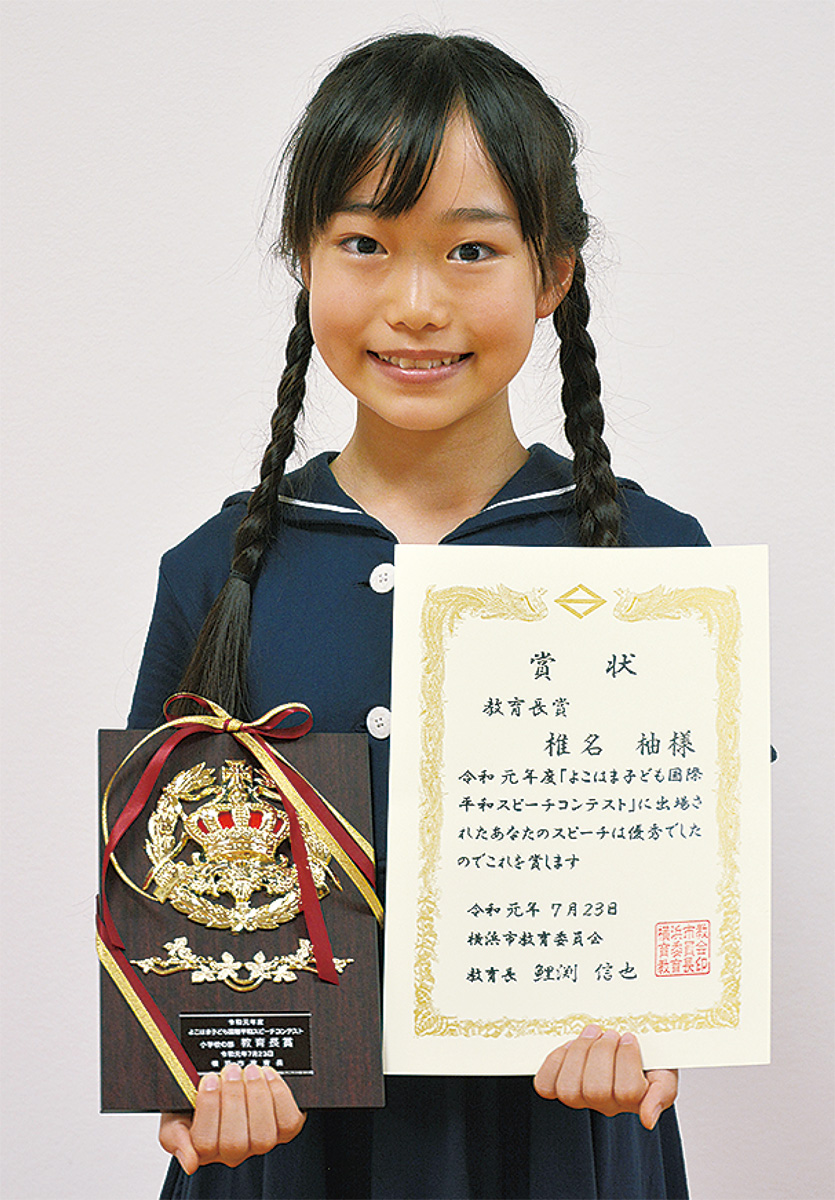 賞 状
教育長賞
椎名 柚様
令和元年度「よこはま子ども国際
平和スピーチコンテスト」に出場さ
れたあなたのスピーチは優秀でした
のでこれを賞します
令和元年 7月23日
横浜市教育委員会
教育長 鯉渕 信也
令和元年度
よこはま子ども国際平和スピーチコンテスト
小学校の部 教育長賞
令和元年7月23日